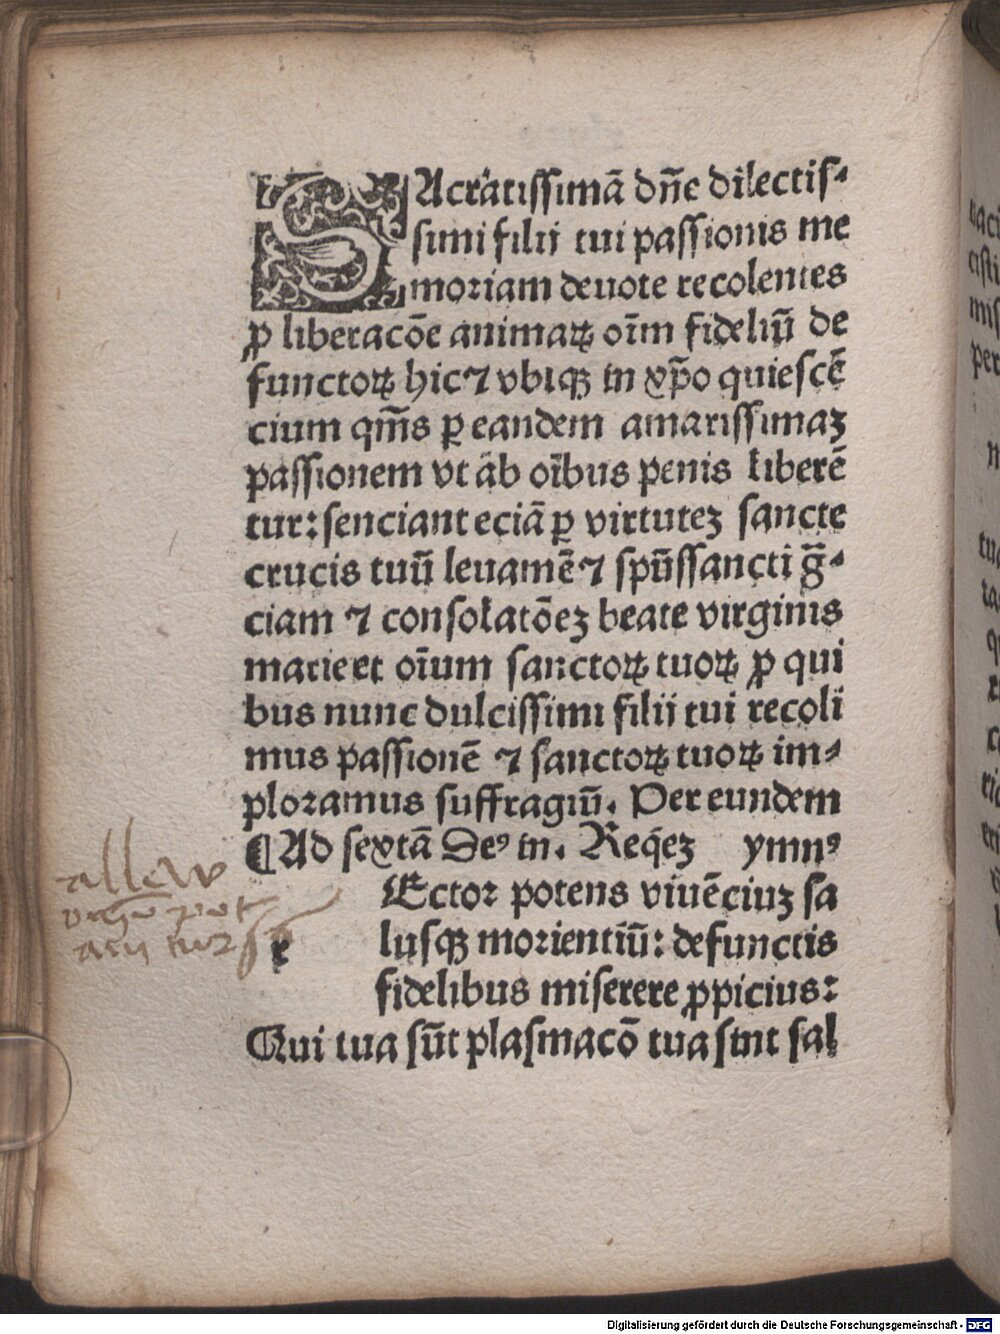 SAcratissimā dn̄e dilectis⸗
simi filij tui passionis me
moriam deuote recolentes
ꝓ liberacōe animaꝝ oīm fideliū de
functoꝝ hic ⁊ vbiqꝫ in xp̄o quiescē
cium qm̄s ꝑ eandem amarissimaꝫ
passionem vt ab oībus penis liberē
tur: senciant eciā ꝑ virtuteꝫ sancte
crucis tuū leuamē ⁊ spūssancti gr̄⸗
ciam ⁊ consolatōeꝫ beate virginis
marie et oīum sanctoꝝ tuoꝝ ꝓ qui
bus nunc dulcissimi filii tui recoli
mus passionē ⁊ sanctoꝝ tuoꝝ im⸗
ploramus suffragiū. Per eundem
¶ Ad sextā Deꝰ in. Reqēꝫ ymnꝰ
r Ector potens viuēciuꝫ sa
lusqꝫ morientiū: defunctis
fidelibus miserere ꝓpicius:
Qui tua sūt plasmacō tua sint sal
Digitalisierung gefördert durch die Deutsche Forschungsgemeinschaft - DFG